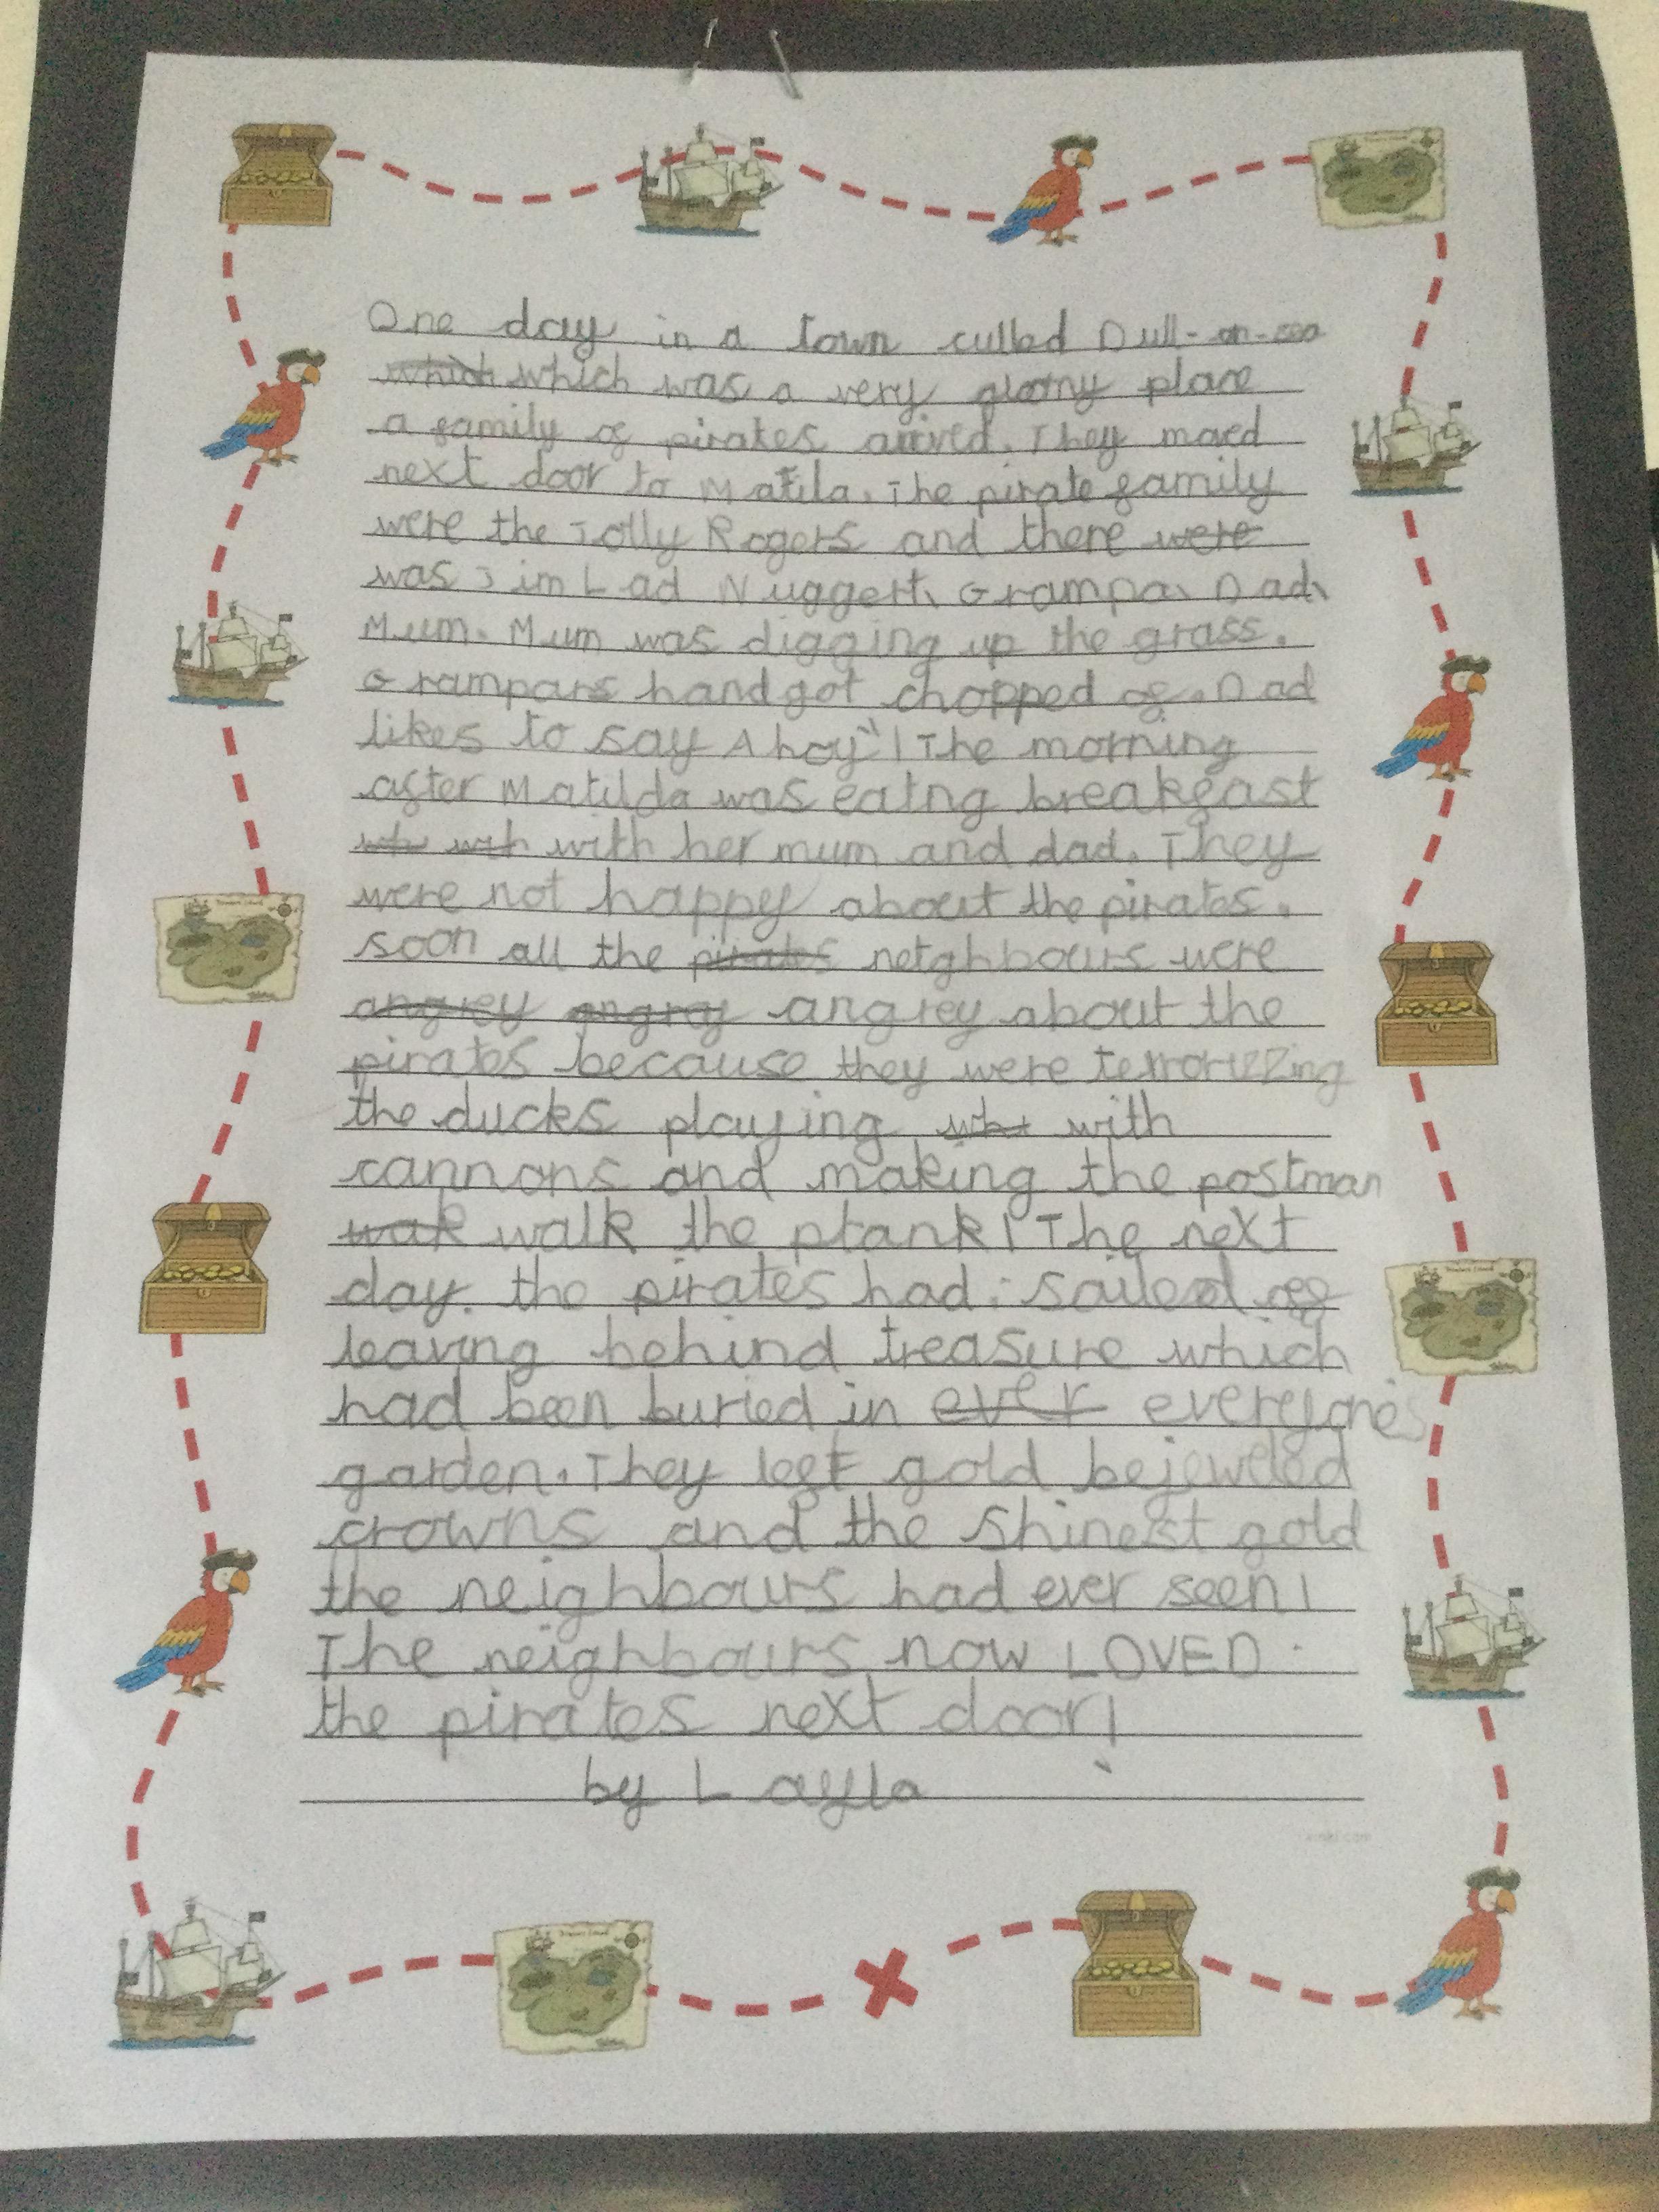 One day in a town culled Dull-on-sea
which which was a very gloomy place
a family of pirates arrived. They moved
next door to Matila. The pirate family
were the Jolly Rogers and there were
was Jim Lad Nuggert, Grampa, Dad,
Mum. Mum was digging up the grass.
Grampars hand got chopped of. Dad
likes to say Ahoy"! The morning
after Matilda was eatng breakfast
wh with with her mum and dad. They
were not happy about the pirates.
soon all the pirates neighbours were
angrey angrey angrey about the
pirates because they were terrorizzing
the ducks playing wht with
cannons and making the postman
wak walk the plank! The next
day. the pirates had sailed off
leaving behind treasure which
had been buried in ever everyone's
garden. They left gold bejeweled
crowns and the shinest gold
the neighbours had ever seen!
The neighbours now LOVED
the pirates next door!
by Layla